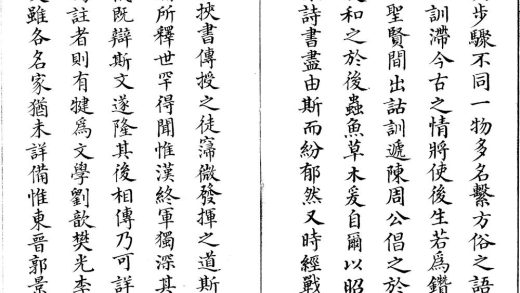 步驟不同一物多名繫方俗之語
訓滯今古之情將使後生若為鑽
聖賢間出詁訓遞陳周公倡之於
和之於後蟲魚草木爰自爾以昭
詩書盡由斯而紛郁然又時經戰
挾書傳授之徒寖微發揮之道斯
所釋世罕得聞惟漢終軍獨深其
既辯斯文遂隆其後相傳乃可詳
註者則有犍為文學劉歆樊光李
雖各名家猶未詳備惟東晉郭景